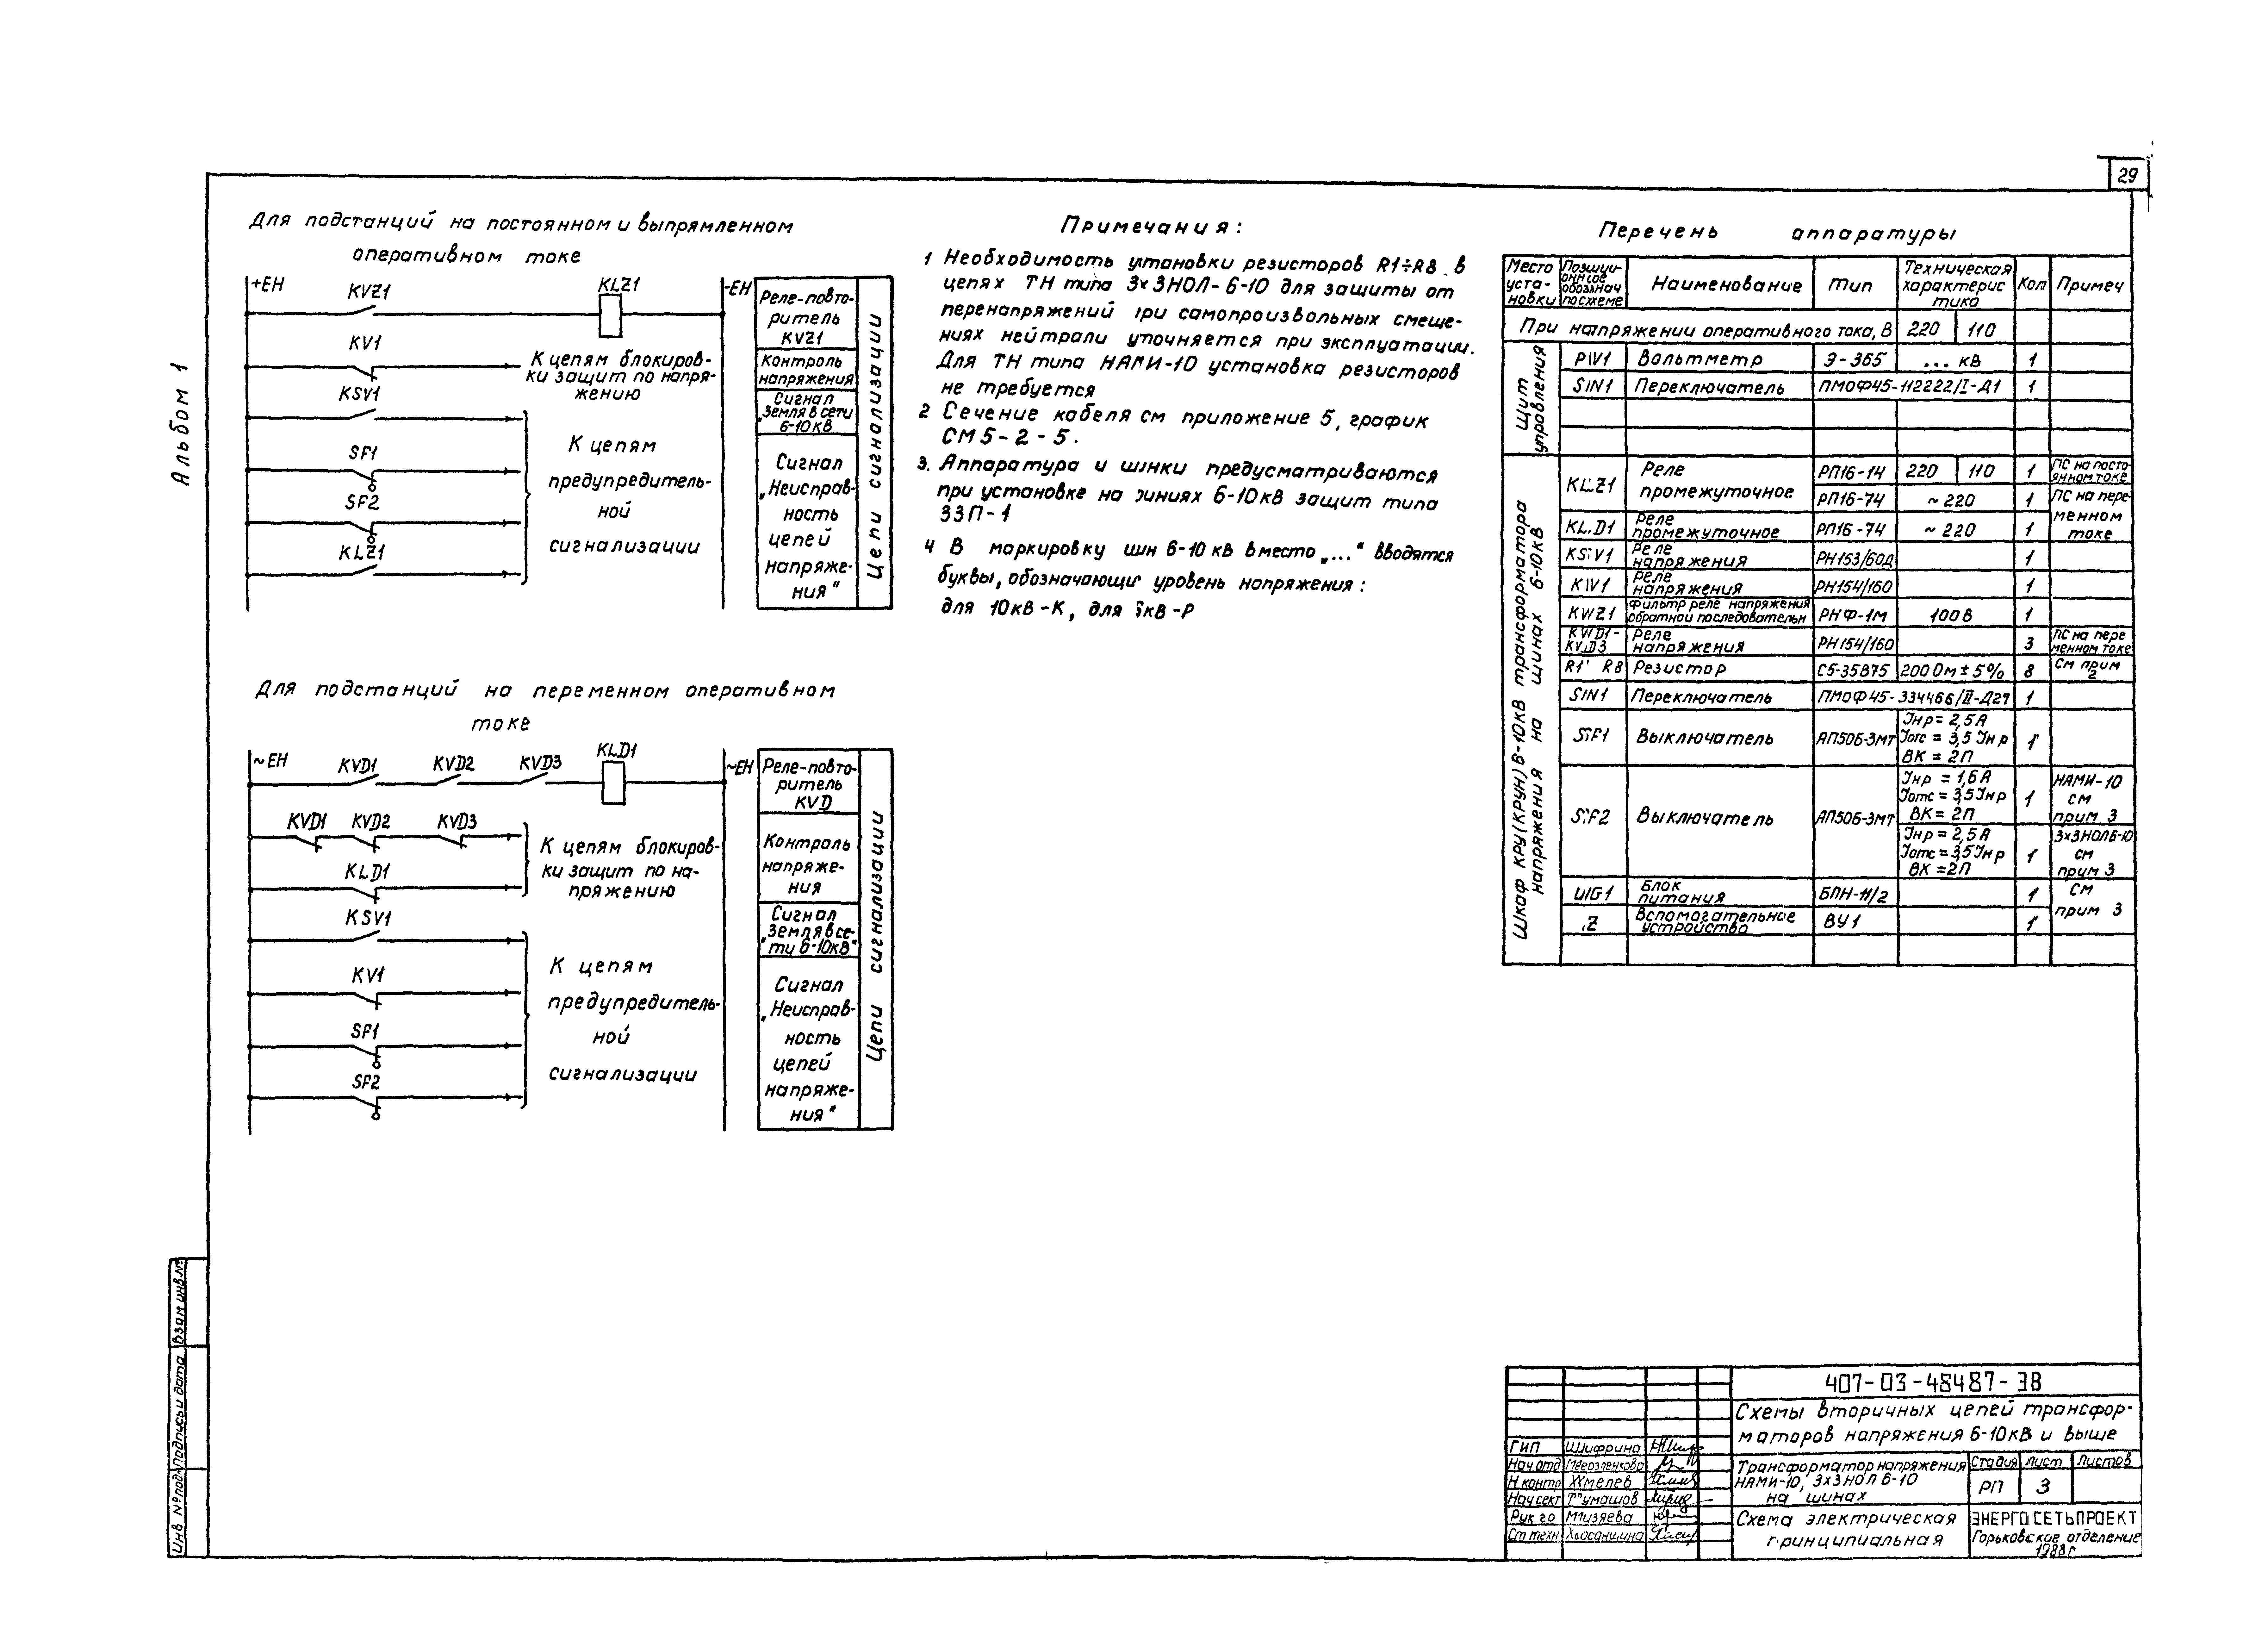 29
Альбом 1
Для подстанций на постоянном и выпрямленном
оперативном токе
+ЕН
KVZ1
KLZ1
-ЕН
KV1
К цепям блокиров-
ки защит по напря-
жению
KSV1
SF1
SF2
KLZ1
К цепям
предупредитель-
ной
сигнализации
Реле-повто-
ритель
KVZ1
Контроль
напряжения
Сигнал
„Земля в сети
6-10кВ
Сигнал
„Неисправ-
ность
цепей
напряже-
ния“
Цепи сигнализации
Для подстанций на переменном оперативном
токе
~ЕН
KVD1
KVD2
KVD3
KLD1
~ЕН
KVD1
KVD2
KVD3
KLD1
К цепям блокиров-
ки защит по на-
пряжению
KSV1
KV1
SF1
SF2
К цепям
предупредитель-
ной
сигнализации
Реле-повто-
ритель
KVD
Контроль
напряже-
ния
Сигнал
„Земля в се-
ти 6-10кВ“
Сигнал
„Неисправ-
ность
цепей
напряже-
ния“
Цепи сигнализации
Примечания:
1 Необходимость установки резисторов R1÷R8 в
цепях ТН типа 3×ЗНОЛ-6-10 для защиты от
перенапряжений при самопроизвольных смеще-
ниях нейтрали уточняется при эксплуатации.
Для ТН типа НАМИ-10 установка резисторов
не требуется
2 Сечение кабеля см приложение 5, график
СМ5-2-5.
3. Аппаратура и шинки предусматриваются
при установке на линиях 6-10кВ защит типа
ЗЗП-1
4 В маркировку шин 6-10 кВ вместо „...“ вводятся
буквы, обозначающие уровень напряжения:
для 10кВ-К, для 6кВ-Р
Перечень аппаратуры
Место уста- новки
Позици- онное обознач по схеме
Наименование
Тип
Техническая характерис тика
Кол
Примеч
При напряжении оперативного тока, В 220 110
Щит управления
PV1 Вольтметр Э-365 ... кВ 1
SN1 Переключатель ПМОФ45-112222/I-Д1 1
Шкаф КРУ(КРУН) 6-10кВ трансформатора
напряжения на шинах 6-10кВ
KLZ1 Реле промежуточное РП16-14 220 110 1 ПС на посто- янном токе
РП16-74 ~220 1 ПС на пере-
менном
токе
KLD1 Реле промежуточное РП16-74 ~220 1
KSV1 Реле напряжения РН153/60Д 1
KV1 Реле напряжения РН154/160 1
KVZ1 Фильтр реле напряжения обратной последовательн РНФ-1М 100В 1
KVD1- KVD3 Реле напряжения РН154/160 3 ПС на пере менном токе
R1 R8 Резистор С5-35В75 200 Ом ± 5% 8 См прим 2
SN1 Переключатель ПМОФ45-334466/II-Д27 1
SF1 Выключатель АП50Б-3МТ Iнр = 2,5А Iотс = 3,5 Iнр ВК = 2П 1
SF2 Выключатель АП50Б-3МТ Iнр = 1,6А Iотс = 3,5 Iнр ВК = 2П 1 НАМИ-10 см прим 3
Iнр = 2,5А Iотс = 3,5 Iнр ВК = 2П 1 3×ЗНОЛ6-10 см прим 3
UG1 Блок питания БПН-11/2 1 см
прим 3
Z Вспомогательное устройство ВУ1 1
Взам инв.№
Подпись и дата
Инв № подл
407-03-484 87-ЭВ
Схемы вторичных цепей трансфор-
маторов напряжения 6-10кВ и выше
ГИП Шифрина
Нач отд
Н контр Хмелев
Нач сект Тумашов
Рук гр Мизяева
Ст техн
Трансформатор напряжения
НАМИ-10, 3×ЗНОЛ 6-10
на шинах
Стадия Лист Листов
РП 3
Схема электрическая
принципиальная
ЭНЕРГОСЕТЬПРОЕКТ
Горьковское отделение
1988г